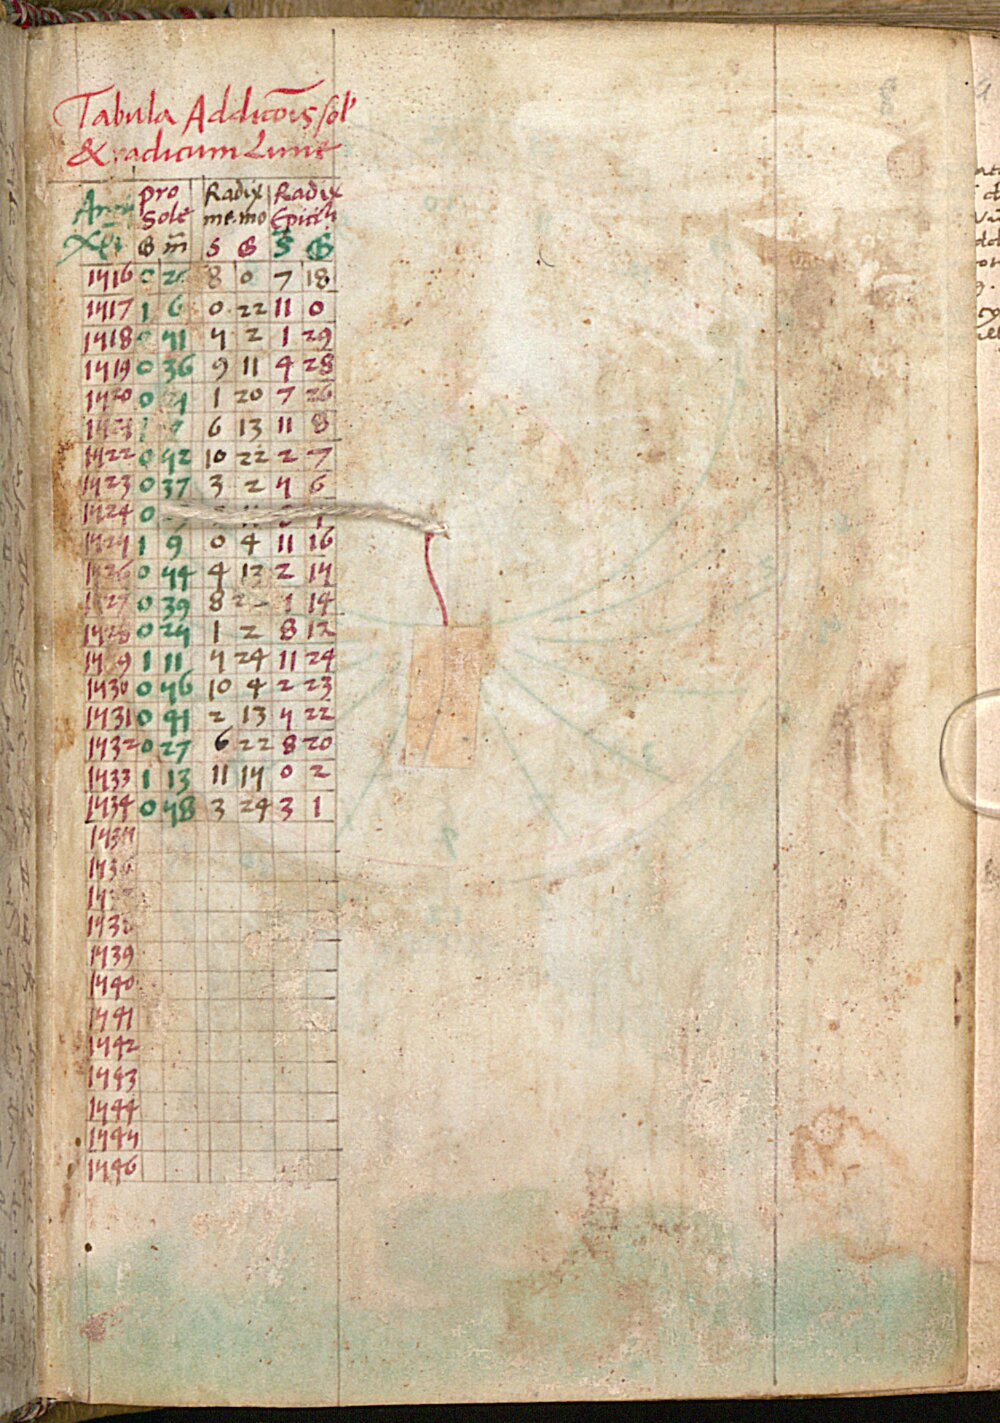 Tabula Addicōis sol'
& radicum Lune
Anni pro Sole Radix me. mo Radix Epicicli
Xpi G m̄ S G S G
1516 0 8 0 7 18
1517 1 6 0 22 11 0
1518 0 51 5 2 1 29
1519 0 36 9 11 4 28
1520 0 21 1 20 7 26
1521 1 6 13 11 8
1522 0 52 10 22 2 7
1523 0 37 3 2 5 6
1524 0
1525 1 9 0 4 11 16
1526 0 54 4 13 2 15
1527 0 39 8 14
1528 0 25 1 2 8 12
1529 1 11 5 24 11 24
1530 0 56 10 4 2 23
1531 0 41 2 13 5 22
1532 0 27 6 22 8 20
1533 1 13 11 15 0 2
1534 0 58 3 24 3 1
1535
1536
1537
1538
1539
1540
1541
1542
1543
1544
1545
1546
8